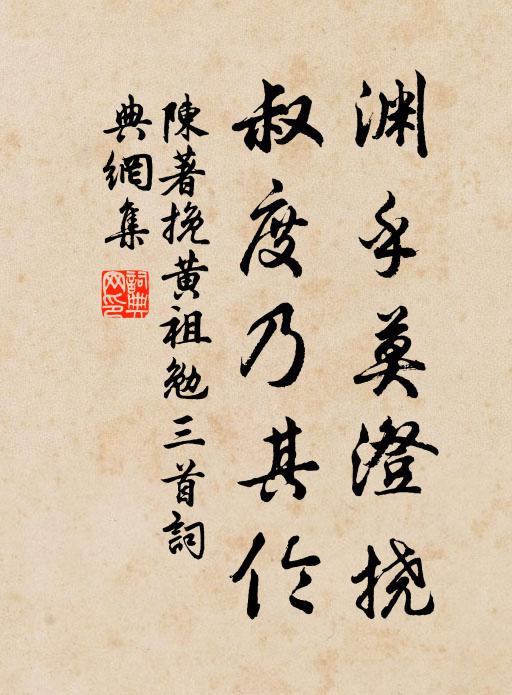 渊乎莫澄挠
叔度乃其伦
陳著挽黄祖勉三首詞
典網集
詞典网印